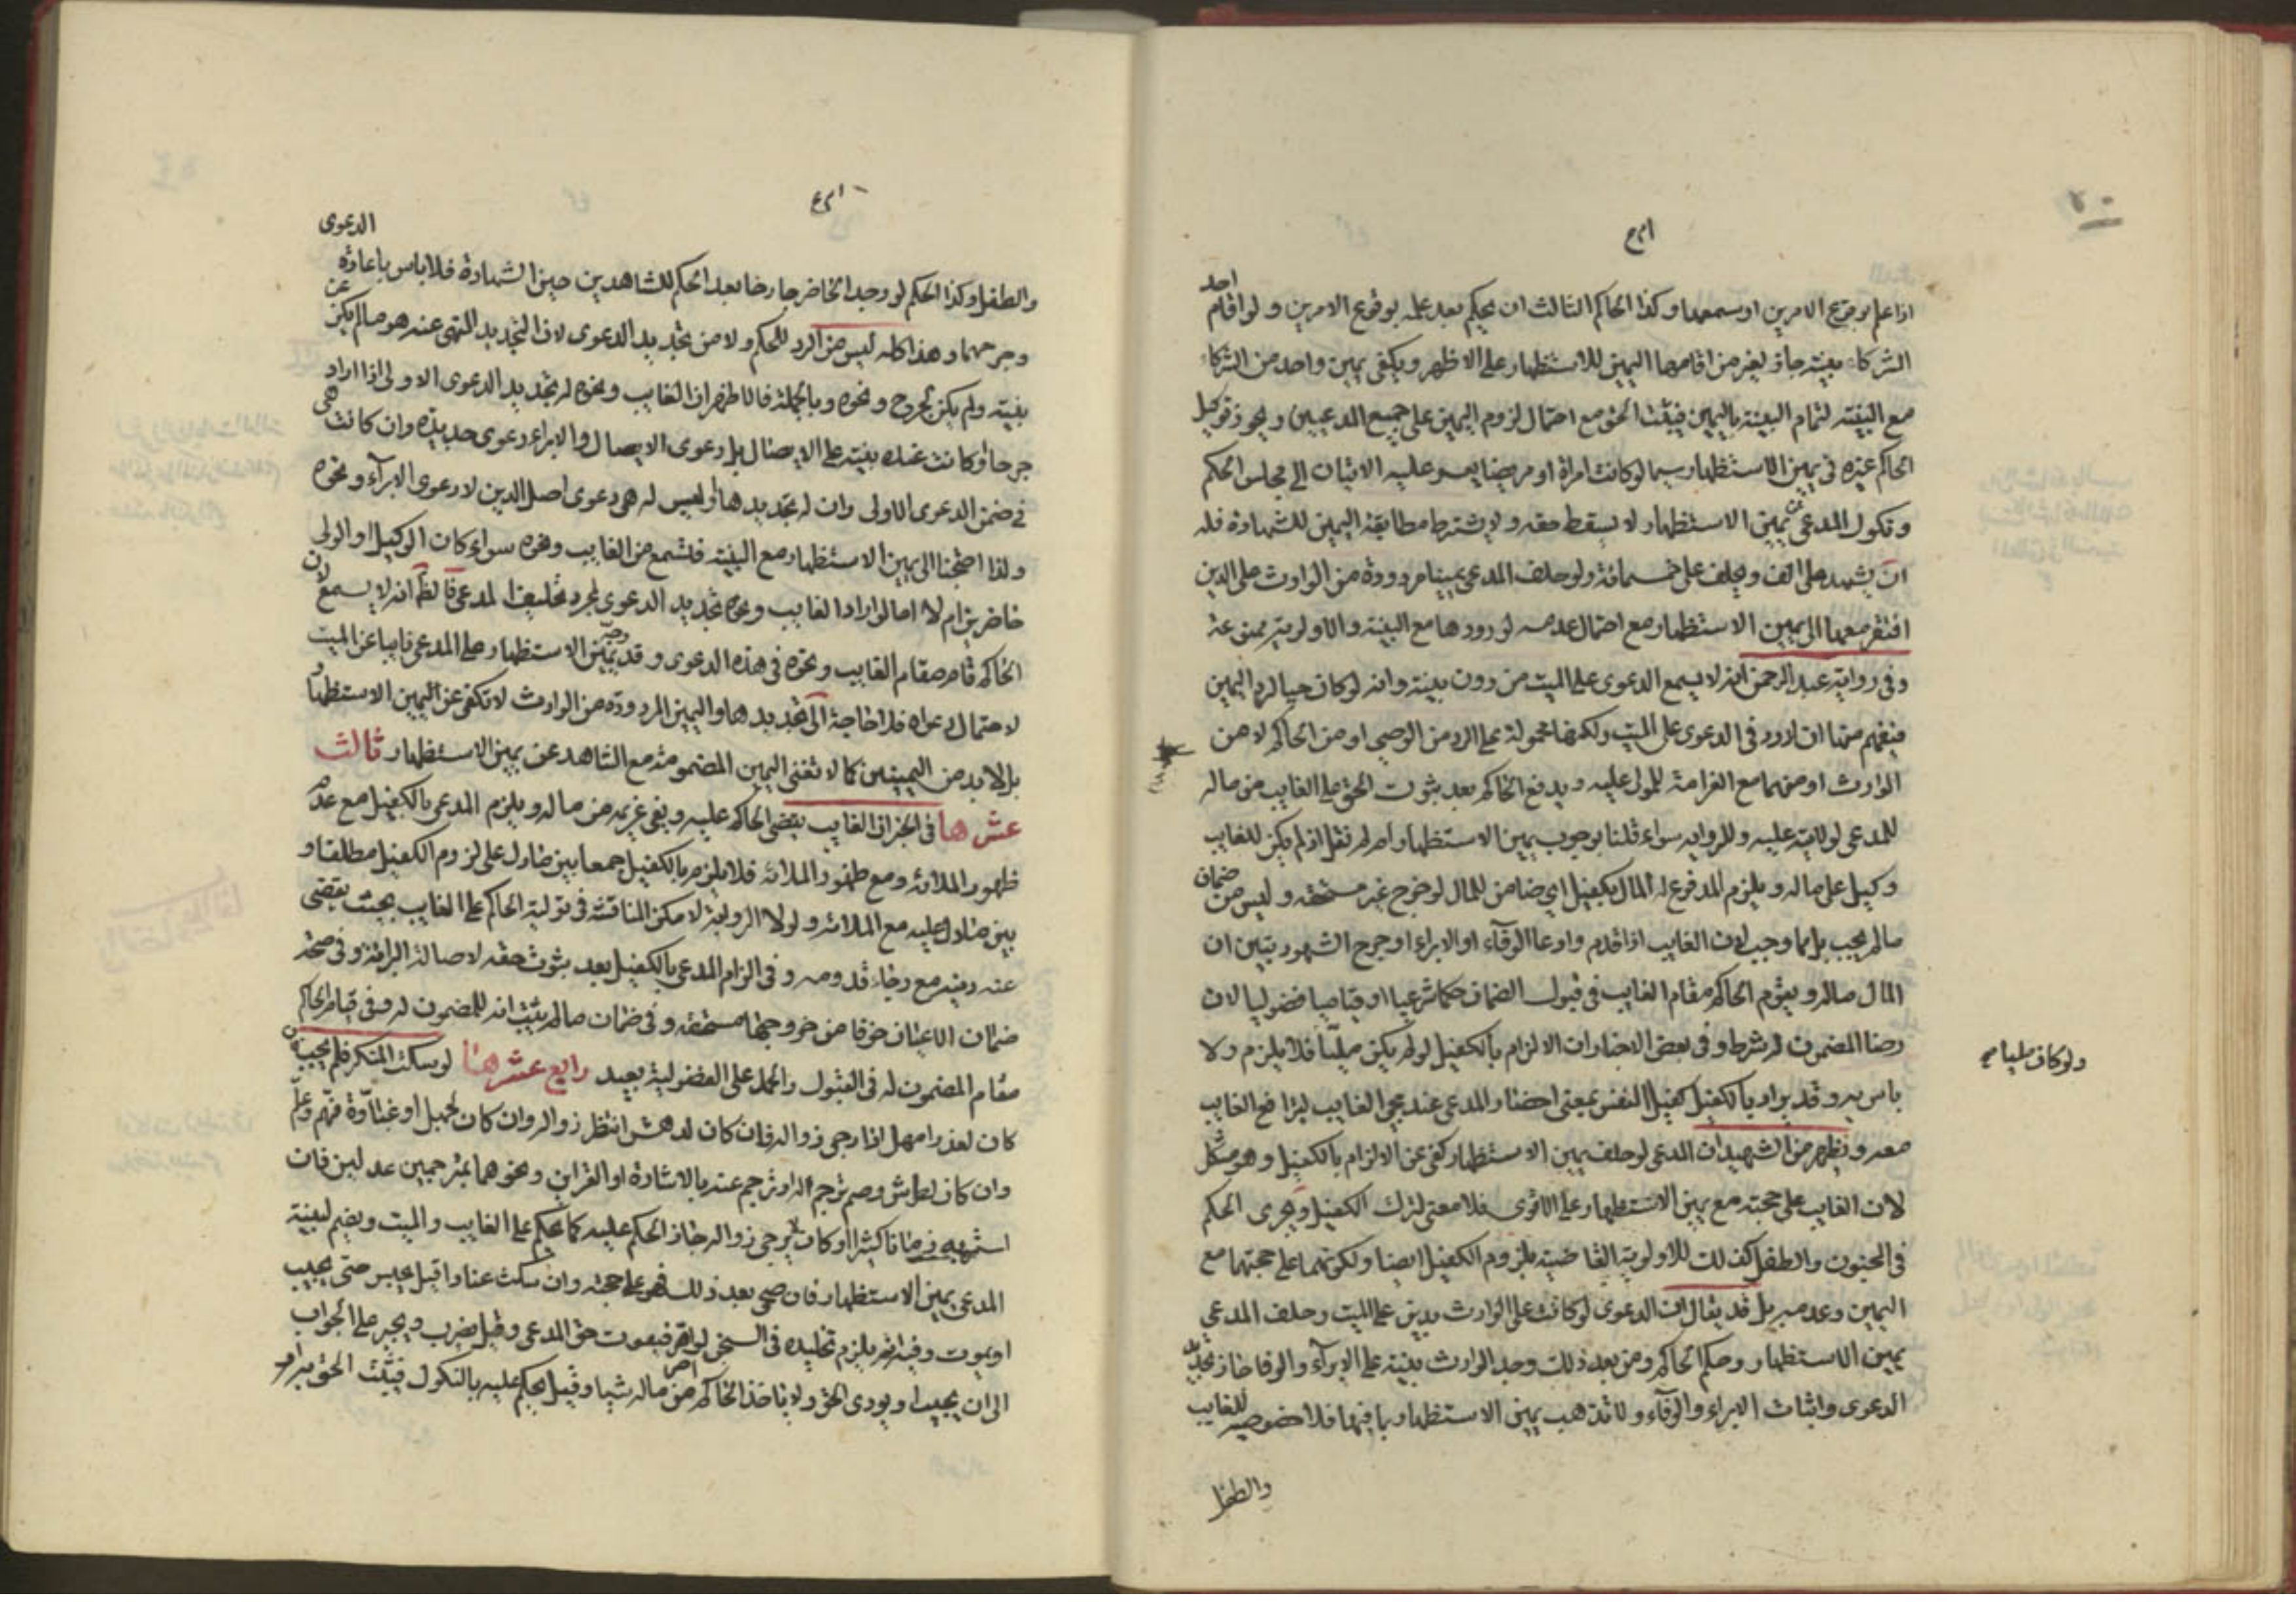 احد
اذا علم بوقوع الامرين او سمعهما وكذا الحاكم الثالث ان يحكم بعد علمه بوقوع الامرين ولو اقام
الشركاء بينة جاز لغير من اقامها اليمين للاستظهار على الاظهر ويكفي يمين واحد من الشركاء
مع البينة لتمام البينة باليمين فيثبت الحق مع احتمال لزوم اليمين على جميع المدعيين ويجوز توكيل
الحاكم غيره في يمين الاستظهار سيما لو كانت امراة او مريضا يعسر عليه الاتيان الى مجلس الحكم
ونكول المدعي عن يمين الاستظهار لا يسقط حقه ولا يشترط مطابقة اليمين للشهادة فله
ان يشهد على الف ويحلف على خمسمائة ولو حلف المدعي يمينا مردودة من الوارث على الدين
افتقر معها الى يمين الاستظهار مع احتمال عدمه لورودها مع البينة والاولوية ممنوعة
وفي رواية عبد الرحمن انه لا يسمع الدعوى على الميت من دون بينة وانه لو كان حيا لرد اليمين
فيفهم منها ان لا رد في الدعوى على الميت ولكنها محمولة على الرد من الوصي او من الحاكم لا من
الوارث او منهما مع الغرامة للمولى عليه ويدفع الحاكم بعد ثبوت الحق على الغايب من ماله
للمدعي لولايته عليه وللرواية سواء قلنا بوجوب يمين الاستظهار ام لم نقل اذا لم يكن للغايب
وكيل على ماله ويلزم المدفوع له المال بكفيل اي ضامن للمال لو خرج غير مستحقه وليس من ضمان
مالم يجب بل مما وجب لان الغايب اذا قدم وادعا الوفاء او الابراء او جرح الشهود تبين ان
المال ماله ويقوم الحاكم مقام الغايب في قبول الضمان حكما شرعيا او قياميا فضوليا لان
رضا المضمون له شرط وفي بعض الاخبار ان الالزام بالكفيل لو لم يكن مليا فلا يلزم ولا
ولو كان مليا صح
باس به وقد يراد بالكفيل كفيل النفس بمعنى احضار المدعي عند مجي الغايب ليترافع الغايب
معه ويظهر من الشهيد ان المدعي لو حلف يمين الاستظهار كفى عن الالزام بالكفيل وهو مشكل
لان الغايب على حجته مع يمين الاستظهار على الاقوى فلا معنى لترك الكفيل ويجرى الحكم
في المجنون والطفل كذلك للاولوية القاضية بلزوم الكفيل ايضا ولكونهما على حجتهما مع
اليمين وعدمه بل قد يقال ان الدعوى لو كانت على الوارث بدين على الميت وحلف المدعي
يمين الاستظهار وحكم الحاكم ومن بعد ذلك وجد الوارث بينة على الابرآء والوفا جاز تجديد
الدعوى واثبات الابراء والوفآء ولا تذهب يمين الاستظهار بما فيها فلا خصوصية للغايب
والطفل
الدعوى
والطفل وكذا الحكم لو وجد الحاضر جارحا بعد الحكم للشاهدين حين الشهادة فلا باس باعادة
وجرحهما وهذا كله ليس من الرد للحكم ولا من تجديد الدعوى لان التجديد المنهى عنه هو مالم يكن عن
بينة ولم يكن لجرح ونحوه وبالجملة فالاظهر ان الغايب ونحوه له تجديد الدعوى الاولى اذا اراد
جرحا او كانت عنده بينة على الايصال بل دعوى الايصال والابراء دعوى جديدة وان كانت هي
في ضمن الدعوى الاولى وان له تجديدها وليس له هي دعوى اصل الدين لا دعوى الابرآء ونحوه
ولذا احتجنا الى يمين الاستظهار مع البينة فتسمع من الغايب ونحوه سواء كان الوكيل او الولي
حاضرين ام لا اما لو اراد الغايب ونحوه تجديد الدعوى لمجرد تحليف المدعي فالظ انه لا يسمع لان
الحاكم قام مقام الغايب ونحوه في هذه الدعوى وقد وجه يمين الاستظهار على المدعي نايبا عن الميت
لاحتمال دعواه فلا حاجة الى تجديدها واليمين المردودة من الوارث لا تكفي عن اليمين الاستظهار
بل لا بد من اليمينين كما لا تغني اليمين المضمومة مع الشاهد عن يمين الاستظهار ثالث
عشرها في الخبر ان الغايب يقضي الحاكم عليه ويفي غريمه من ماله ويلزم المدعي بالكفيل مع عدم
ظهور الملائة ومع ظهور الملائة فلا يلزم بالكفيل جمعا بين ما دل على لزوم الكفيل مطلقا و
بين ما دل عليه مع الملائة ولولا الرواية لامكن المناقشة في تولية الحاكم على الغايب بحيث يقضي
عنه دينه مع رجاء قدومه وفي الزام المدعي بالكفيل بعد ثبوت حقه لاصالة البرائة وفي صحة
ضمان الاعيان خوفا من خروجها مستحقه وفي ضمان مالم يثبت انه للمضمون له وفي قيام الحاكم
مقام المضمون له في القبول والحمل على الفضولية بعيد رابع عشرها لو سكت المنكر فلم يجب فان
كان لعذر امهل اذا رجى زواله فان كان لدهش انتظر زواله وان كان لجهل او غباوة فهم وعلم
وان كان لطرش وصم ترجم له او ترجم عنه بالاشادة او القراين ونحوهما بمترجمين عدلين فان
استمر به زمانا كثيرا او كان لا يرجى زواله جاز الحكم عليه كما يحكم على الغايب والميت ويضم لبينة
المدعي يمين الاستظهار فان صحى بعد ذلك فهو على حجته وان سكت عنادا قيل يحبس حتى يجيب
او يموت وفيه انه يلزم تخليده في السجن لو اقر فيفوت حق المدعي وقيل يضرب ويجبر على الجواب
الى ان يجيب او يودى الحق ولا ياخذ الحاكم من ماله شيا وقيل يحكم عليه بالنكول فيثبت الحق